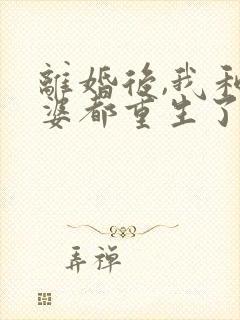 離婚後,我和
婆都重生了
弄禅